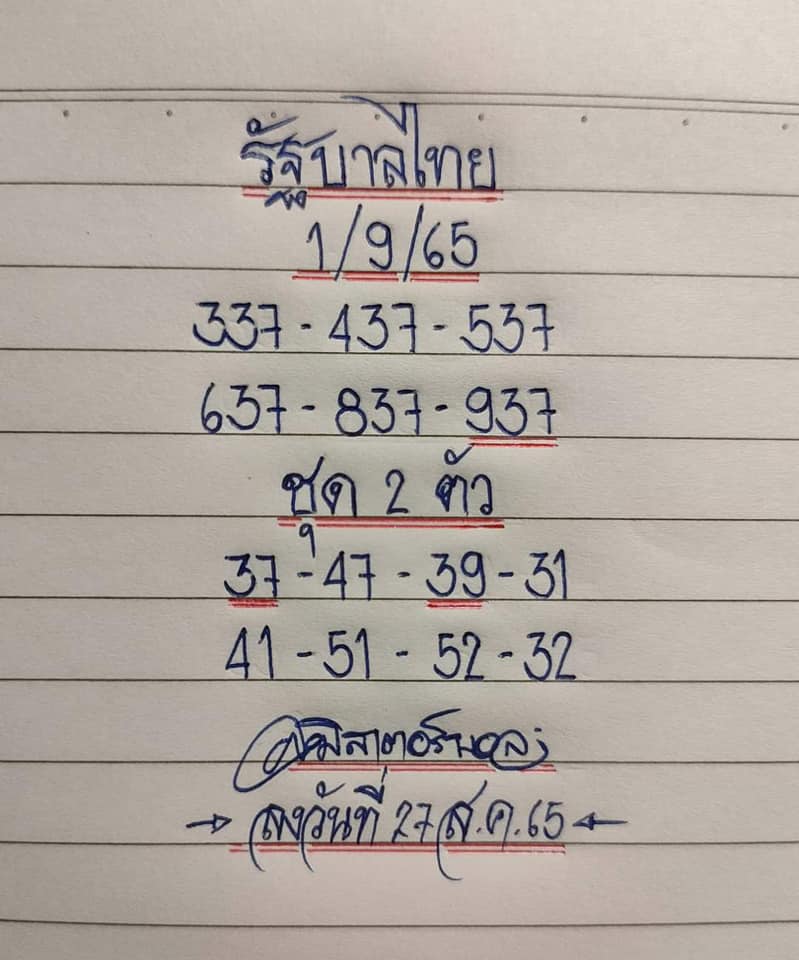 รัฐบาลไทย
1/9/65
337 - 437 - 537
637 - 837 - 937
ชุด 2 ตัว
37 - 47 - 39 - 31
41 - 51 - 52 - 32
ลงวันที่ 27 ส.ค. 65